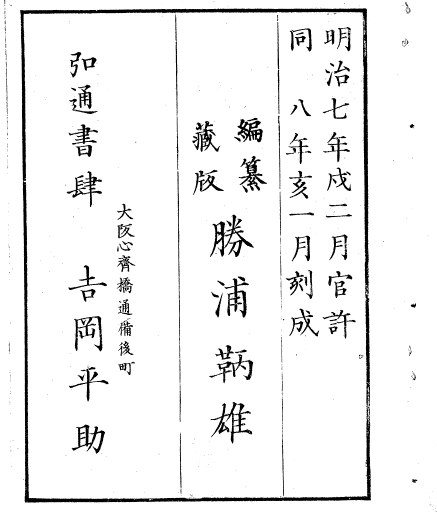 明治七年戌二月官許
同　八年亥一月刻成
編纂
藏版
勝浦鞆雄
大阪心齋橋通備後町
弘通書肆　吉岡平助